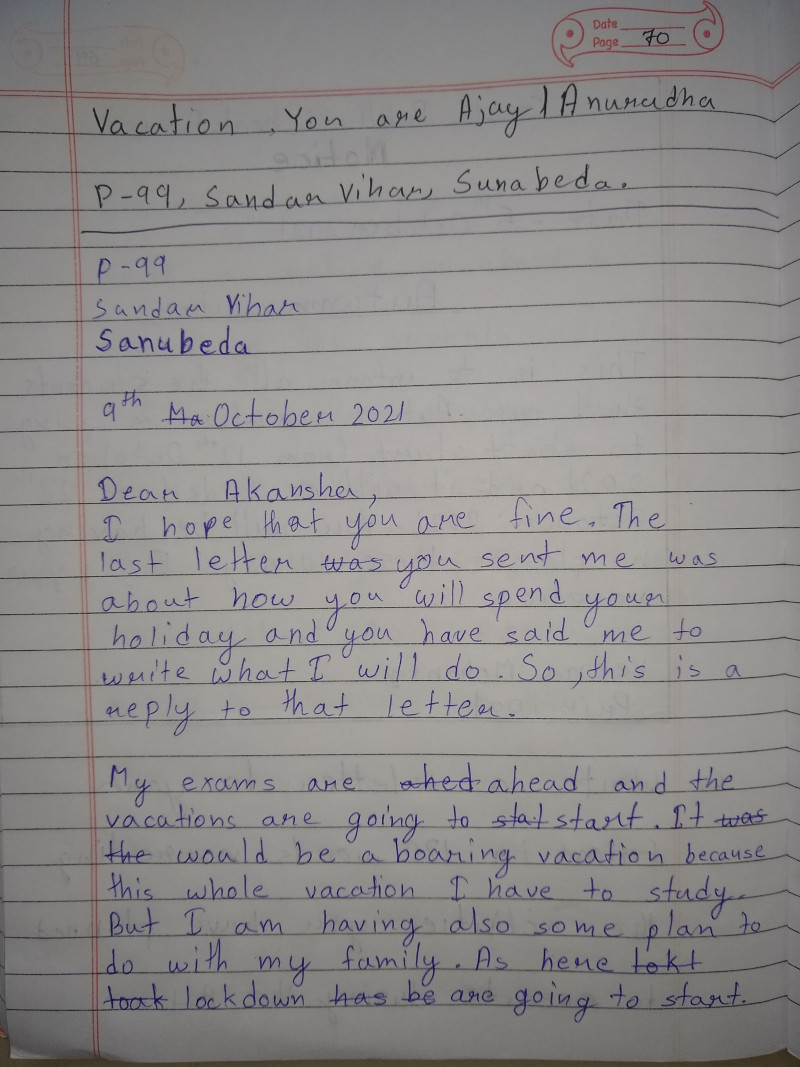 Date
Page 70
Vacation. You are Ajay / Anuradha
P-99, Sandar Vihar, Sunabeda.
P-99
Sundar Vihar
Sanubeda
9th Ma October 2021
Dear Akansha,
I hope that you are fine. The
last letter was you sent me was
about how you will spend your
holiday and you have said me to
write what I will do. So, this is a
reply to that letter.
My exams are ahed ahead and the
vacations are going to stat start. It was
the would be a boaring vacation because
this whole vacation I have to study.
But I am having also some plan to
do with my family. As here tokt
took lockdown has be are going to start.